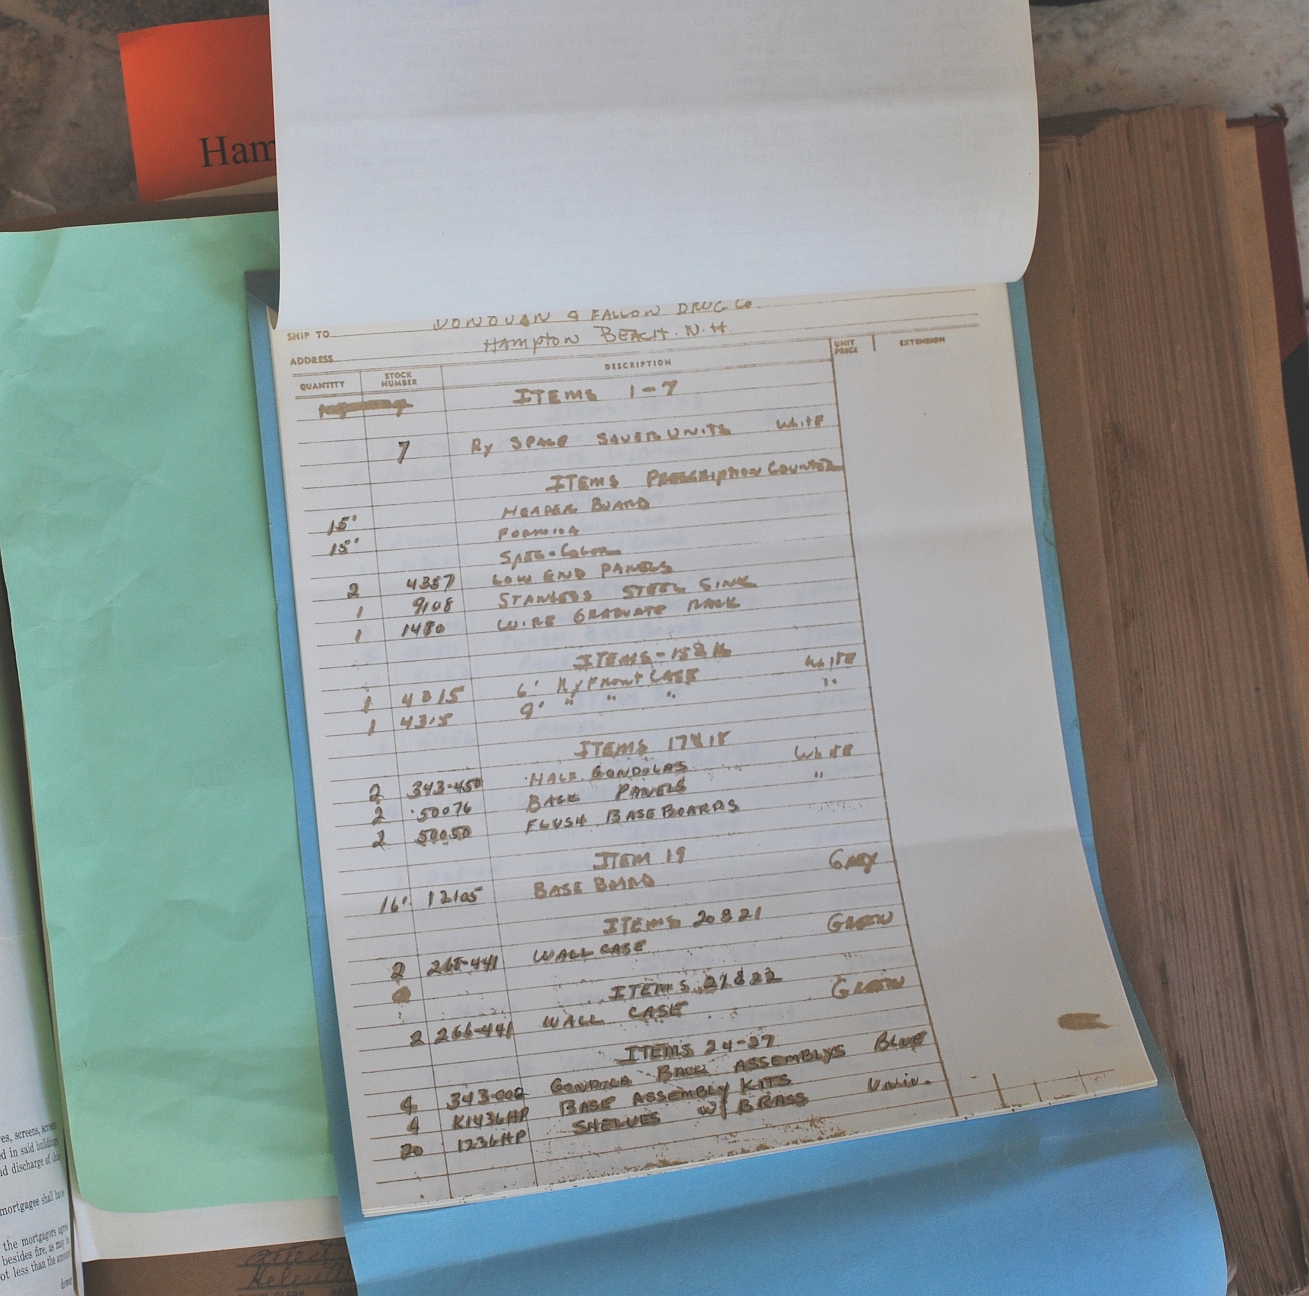 Ham
SHIP TO DONOVAN & FALLON DRUG Co
ADDRESS HAMPTON BEACH. N.H
QUANTITY STOCK NUMBER DESCRIPTION UNIT PRICE EXTENSION
ITEMS 1-7
7 SPACE SAVER UNITS White
ITEMS PRESCRIPTION COUNTER
15' HEADER BOARD
15' FORMICA
SPEC-Color
2 4357 LOW END PANELS
1 9108 STANLESS STEEL SINK
1 1480 WIRE GRADUATE RACK
ITEMS-15&16
1 4315 6' Ry FRONT CASE White
1 4315 9' " " " "
ITEMS 17&18
2 343-450 HALF GONDOLAS White
2 50076 BACK PANELS "
2 50050 FLUSH BASEBOARDS
ITEM 19
16' 12105 BASE BOARD GREY
ITEMS 20&21
2 WALL CASE GREEN
ITEMS 21&22
2 266-441 WALL CASE GREEN
ITEMS 24-27
4 343-002 GONDOLA BACK ASSEMBLYS BLUE
4 K1436HP BASE ASSEMBLY KITS
20 1236HP SHELVES W/ BRASS Univ.
es, screens,
d in said
nd discharge of
mortgagee shall have
the mortgagors
besides fire, as may
ot less than the
attest
Helen